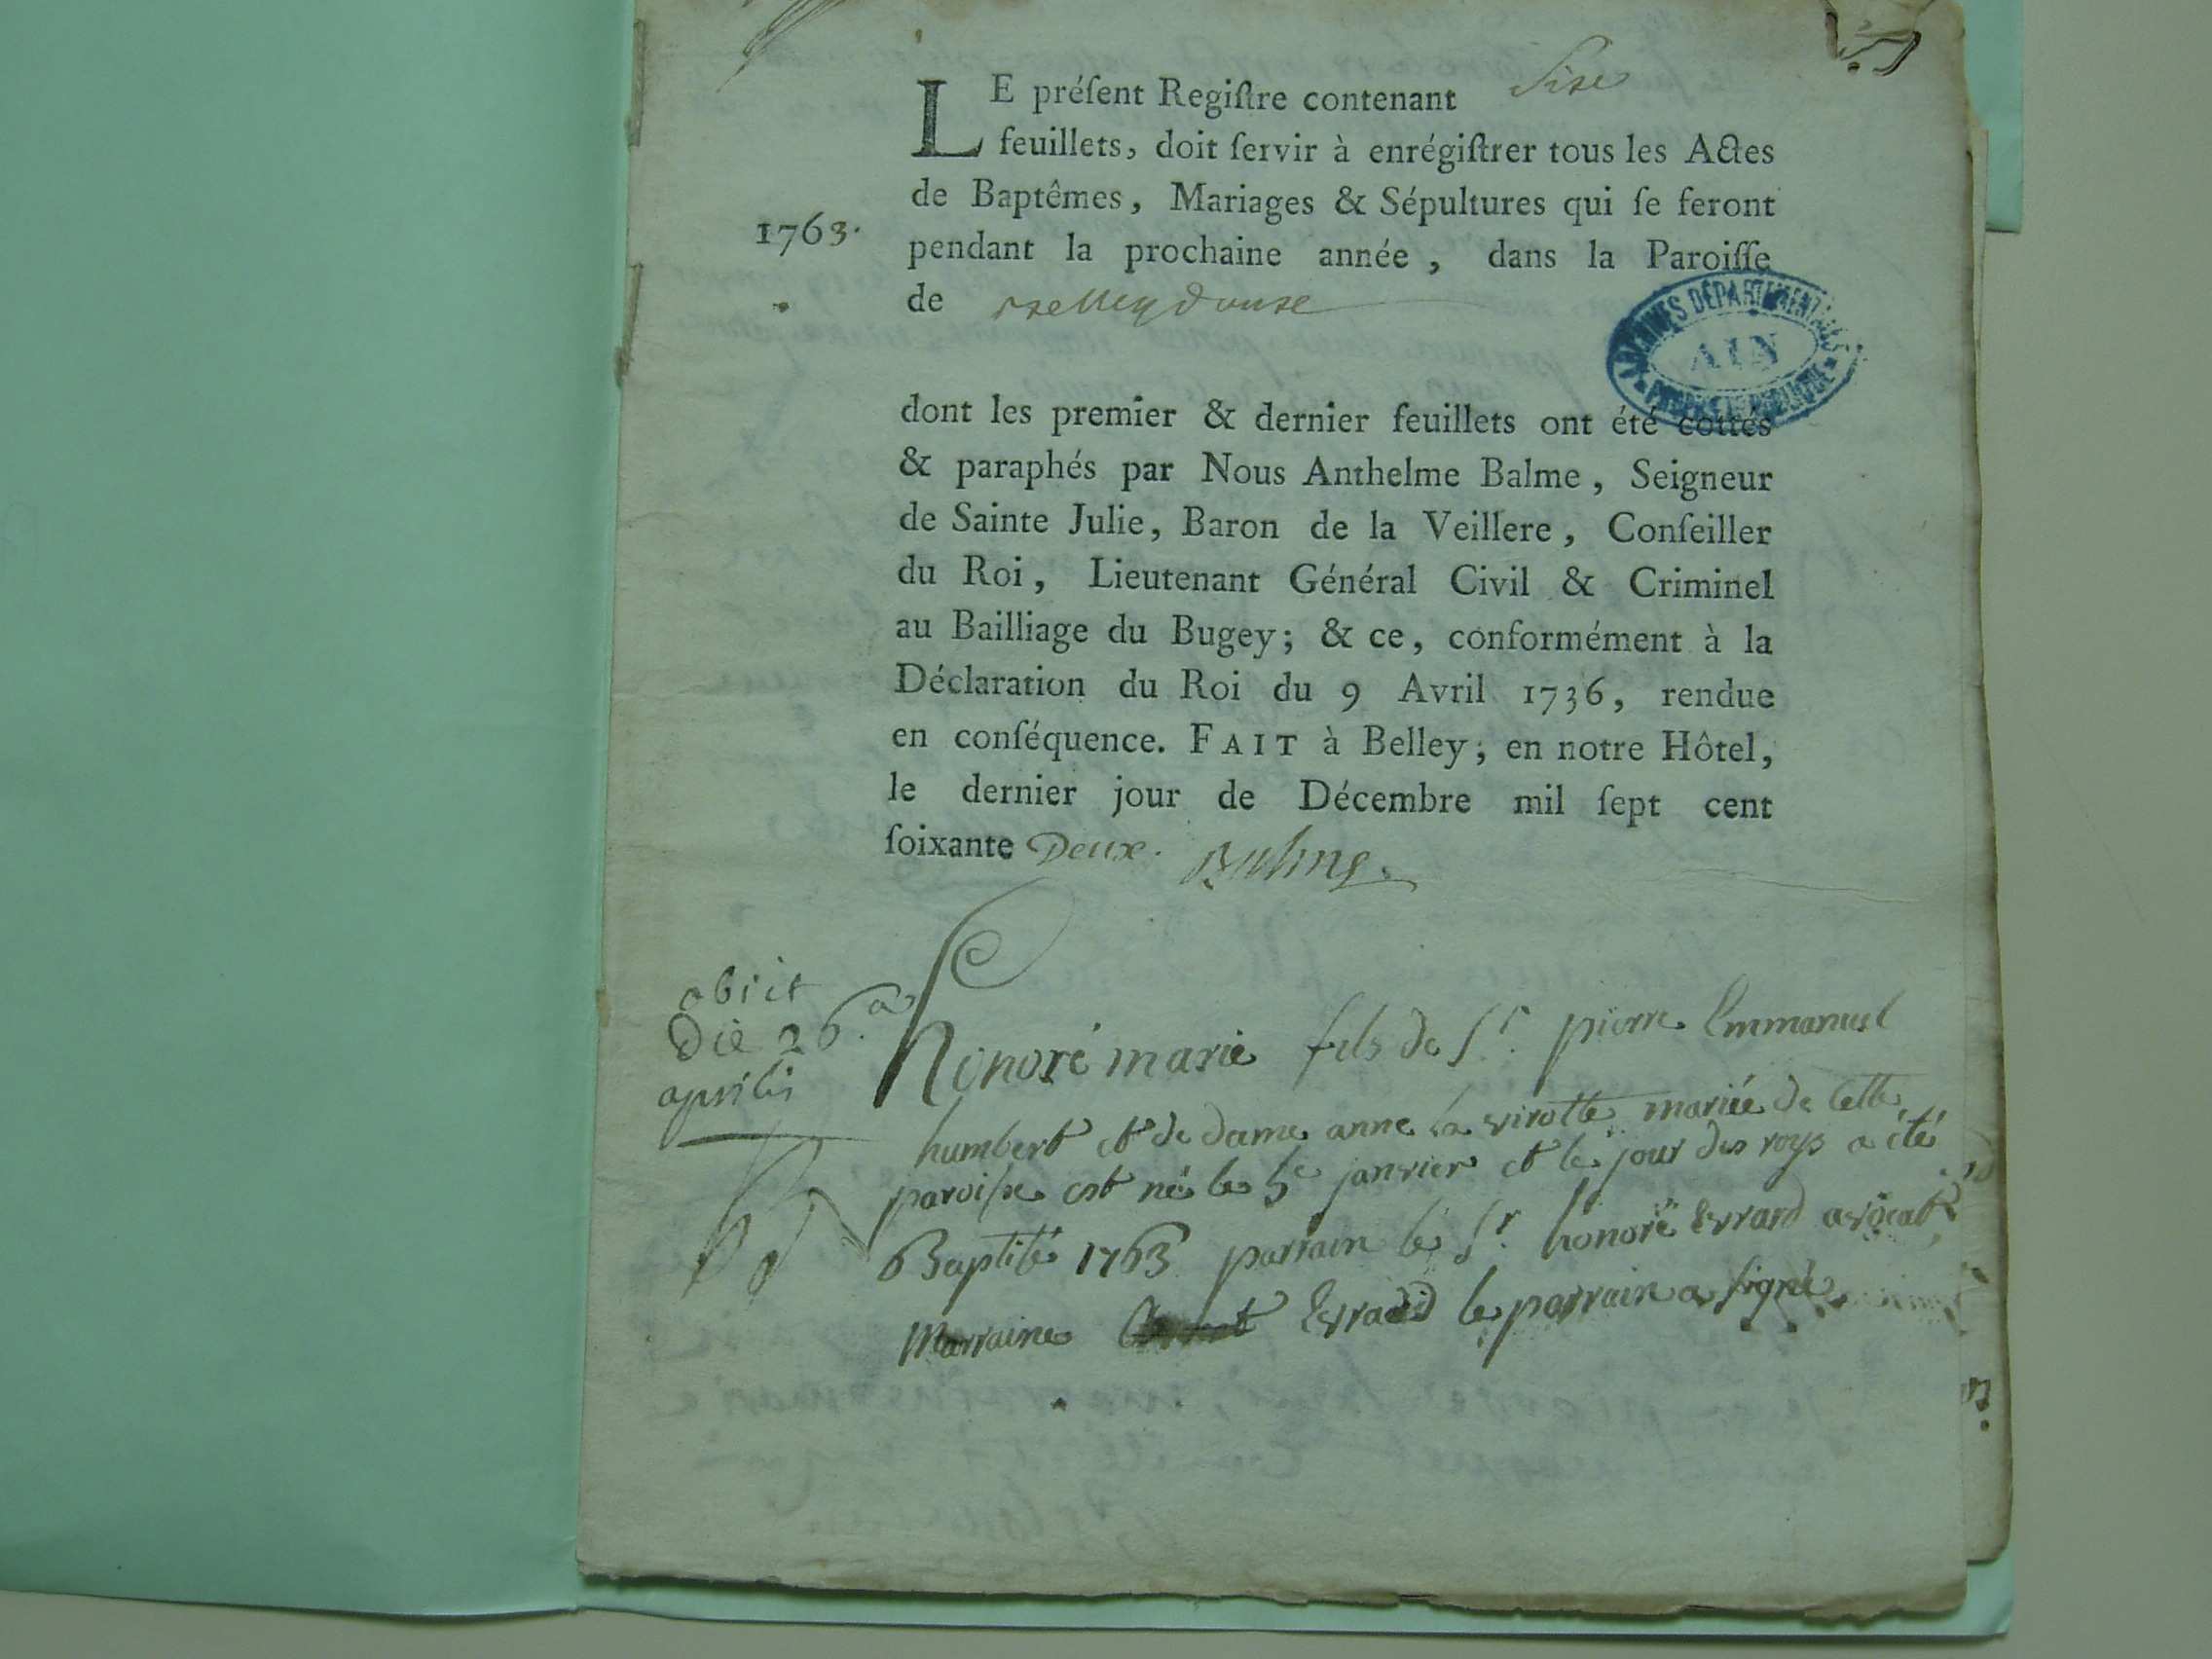 LE préſent Regiſtre contenant Sise
feuillets, doit ſervir à enrégiſtrer tous les Actes
de Baptêmes, Mariages & Sépultures qui ſe feront
1763.
pendant la prochaine année, dans la Paroiſſe
de
ARCHIVES DÉPARTEMENTALES
AIN
dont les premier & dernier feuillets ont été cottés
& paraphés par Nous Anthelme Balme, Seigneur
de Sainte Julie, Baron de la Veillere, Conſeiller
du Roi, Lieutenant Général Civil & Criminel
au Bailliage du Bugey; & ce, conformément à la
Déclaration du Roi du 9 Avril 1736, rendue
en conſéquence. FAIT à Belley, en notre Hôtel,
le dernier jour de Décembre mil ſept cent
ſoixante Deux.
obiit
Die 26.a
aprilis
honoré marie fils de Sr. pierre Emmanuel
humbert et de dame anne la virotte mariée de Cette
paroisse est né le 5e janvier et le jour des roys a été
Baptisé 1763 parrain le Sr. honoré Evrard avocat
Marraine Evrard le parrain a signé